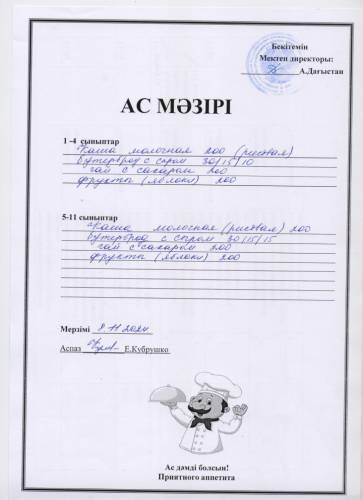 Бекітемін
Мектеп директоры:
А.Дағыстан
АС МӘЗІРІ
1 -4 сыныптар
Каша молочная 200 (рисовая)
бутерброд с сыром 30/15/10
чай с сахаром 200
фрукты (яблоки) 200
5-11 сыныптар
Каша молочная (рисовая) 200
бутерброд с сыром 30/15/15
чай с сахаром 200
фрукты (яблоки) 200
Мерзімі 8.11.2024
Аспаз Е.Кубрушко
Ас дәмді болсын!
Приятного аппетита